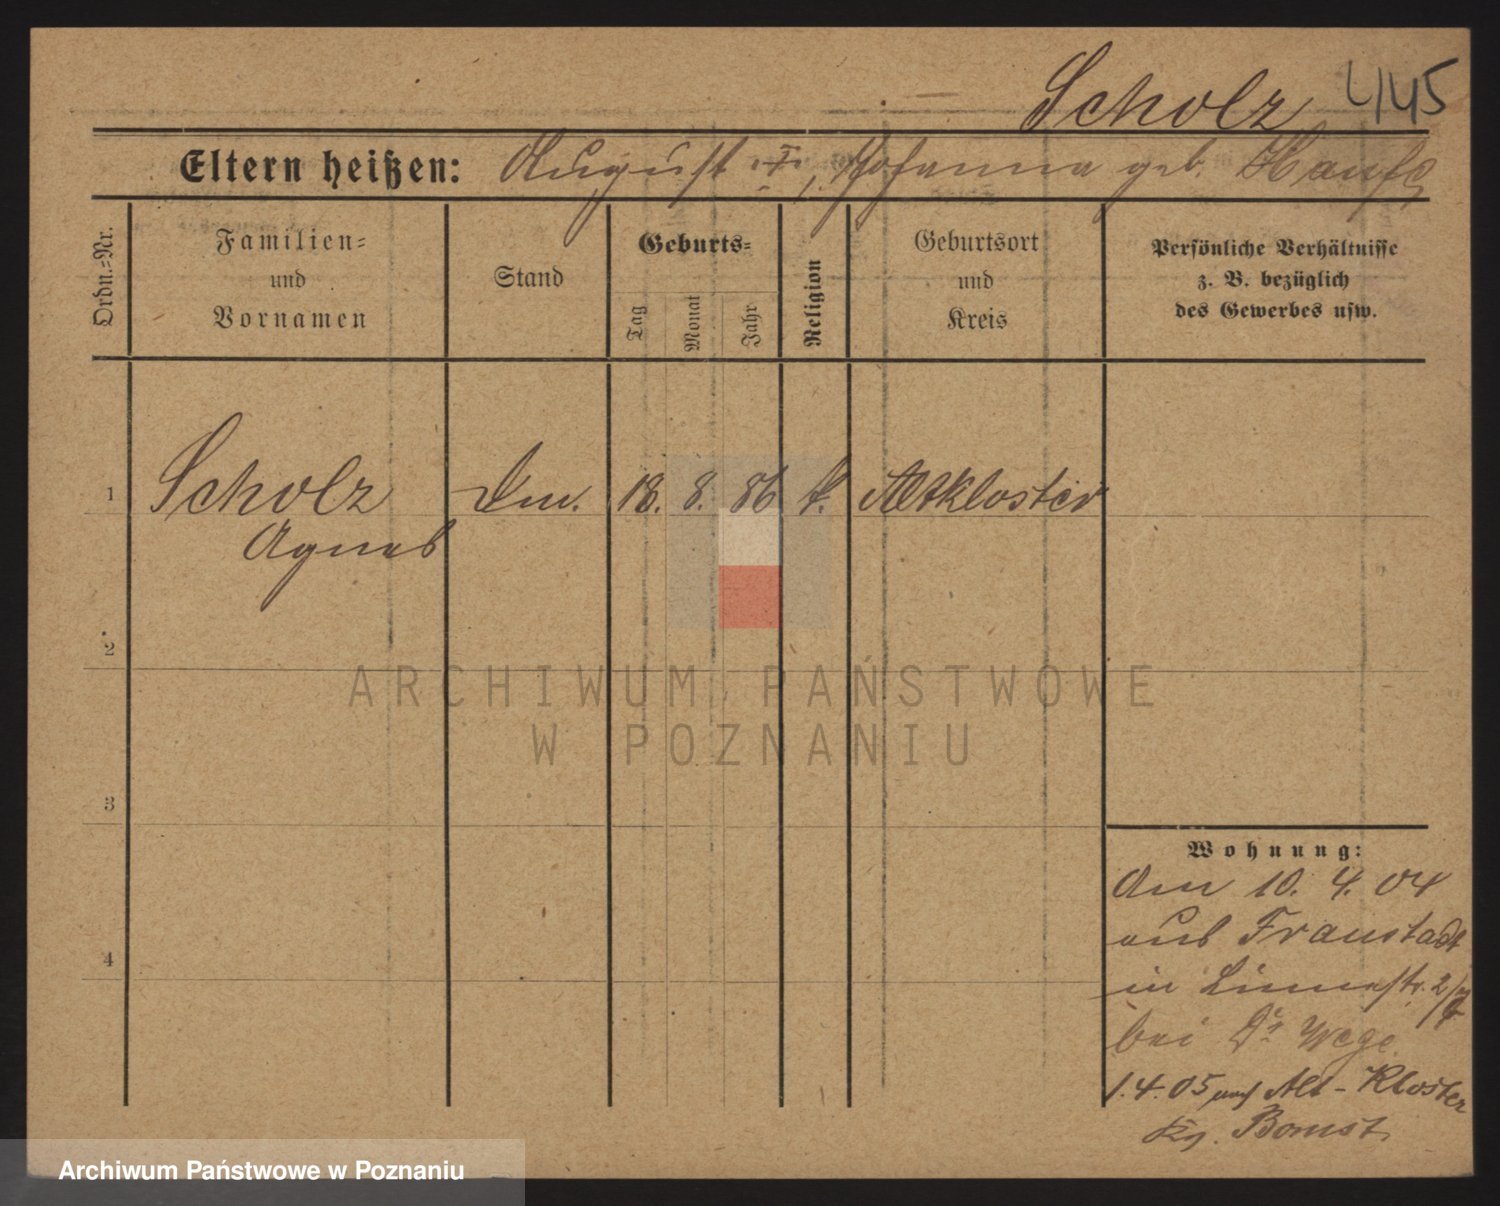 Scholz 445
Eltern heißen: August †, Johanna geb.
Ordn.-Nr.
Familien-
und
Vornamen
Stand
Geburts-
Tag
Monat
Jahr
Religion
Geburtsort
und
Kreis
Persönliche Verhältnisse
z. B. bezüglich
des Gewerbes usw.
1 Scholz 18. 8. 86 k. Altkloster
Agnes
2
3
4
Wohnung:
Am 10. 4. 04
aus Fraustadt
in
bei Dr Wege
1.4.05 nach Alt-Kloster
Bomst
ARCHIWUM PAŃSTWOWE
W POZNANIU
Archiwum Państwowe w Poznaniu